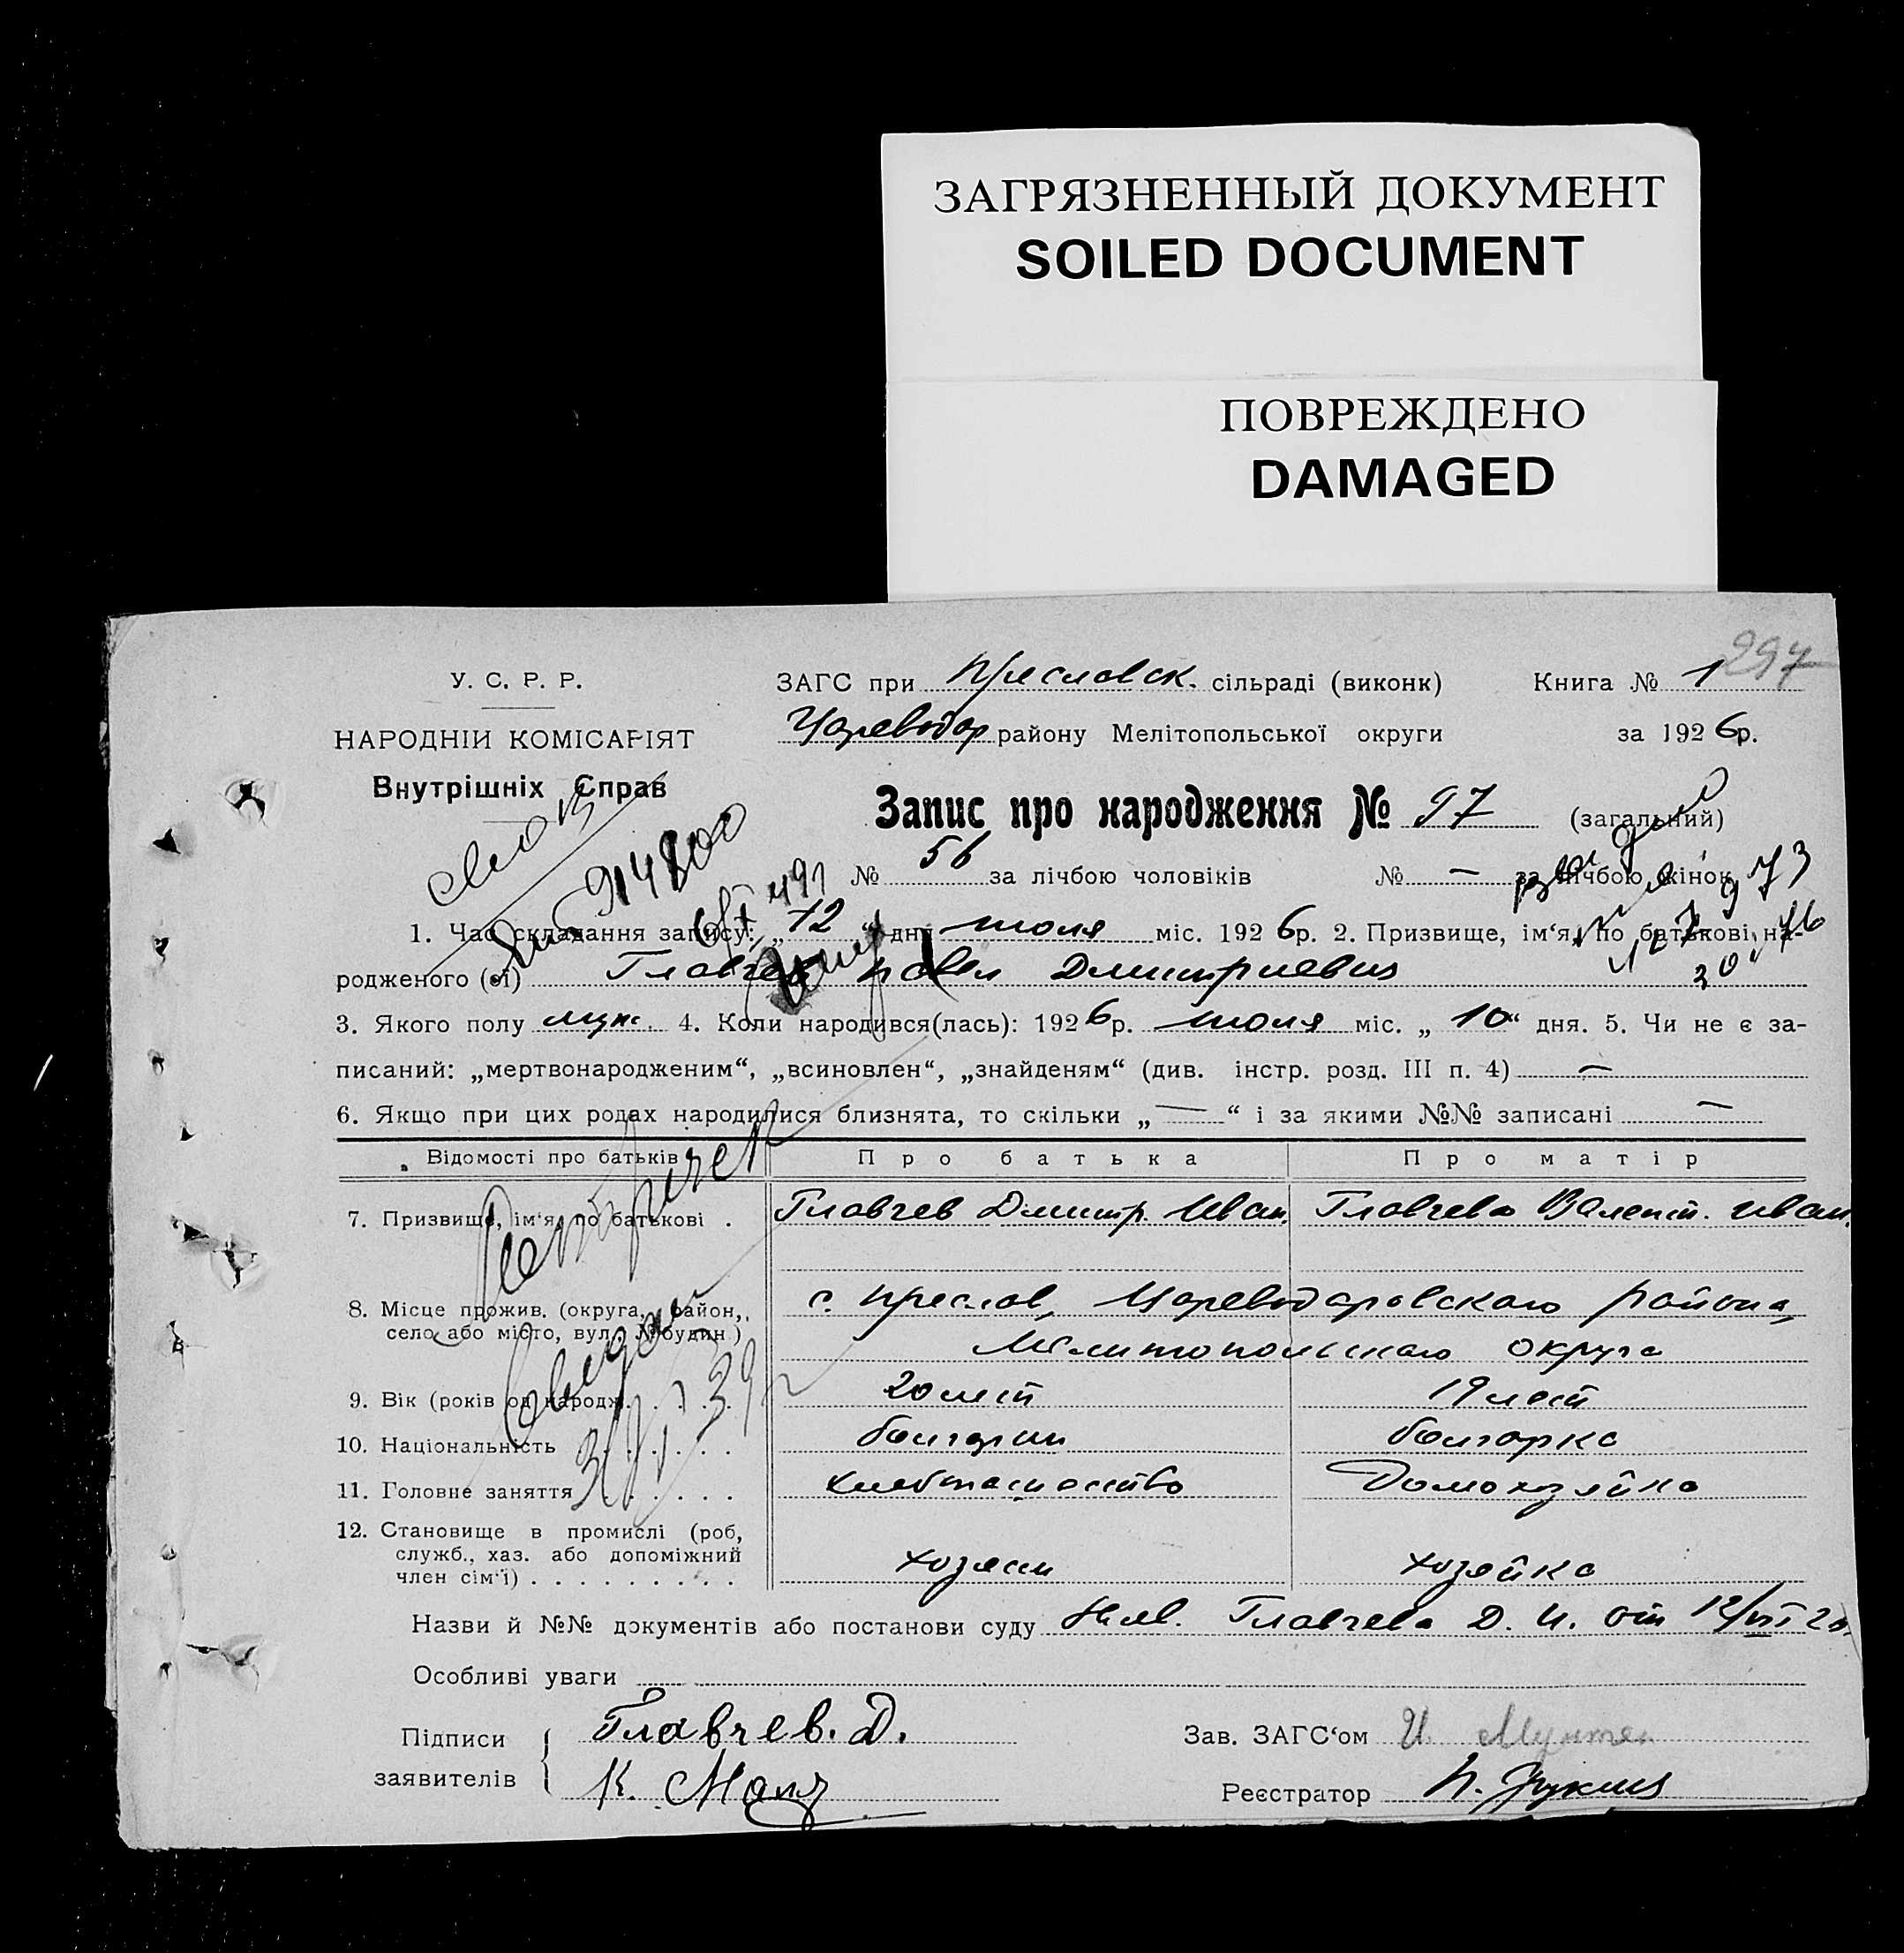 ЗАГРЯЗНЕННЫЙ ДОКУМЕНТ
SOILED DOCUMENT
ПОВРЕЖДЕНО
DAMAGED
297
У. С. Р. Р.
НАРОДНІЙ КОМІСАРІЯТ
Внутрішніх Справ
ЗАГС при Преславск. сільраді (виконк) Книга № 1
Цареводар району Мелітопольської округи за 1926р.
Запис про народження № 97 (загальний)
№ 56 за лічбою чоловіків № — за лічбою жінок
1. Час складання запису: „12“ дня июля міс. 1926р. 2. Призвище, ім‘я, по батькові на-
родженого (ої) Главчев Павел Дмитриевич
3. Якого полу муж. 4. Коли народився(лась): 1926р. июля міс. „10“ дня. 5. Чи не є за-
писаний: „мертвонародженим“, „всиновлен“, „знайденям“ (див. інстр. розд. III п. 4) —
6. Якщо при цих родах народилися близнята, то скільки „—“ і за якими №№ записані —
Відомості про батьків Про батька Про матір
7. Призвище, ім‘я, по батькові . Главчев Дмитр. Иван. Главчева Валент. Иван.
8. Місце прожив. (округа, район, с. Преслав, Цареводаровского района,
село або місто, вул. № будин) Мелитопольского округа
9. Вік (років од народж. . . . . 20 лет 19 лет
10. Національність . . . . . болгарин болгарка
11. Головне заняття . . . . . хлебопашество Домохозяйка
12. Становище в промислі (роб,
служб., хаз. або допоміжний
член сім‘ї) . . . . . . . . . хозяин хозяйка
Назви й №№ документів або постанови суду Главчева Д. И. от 12/VII 26
Особливі уваги
Підписи Главчев. Д. Зав. ЗАГС‘ом И.
заявителів К. Реєстратор